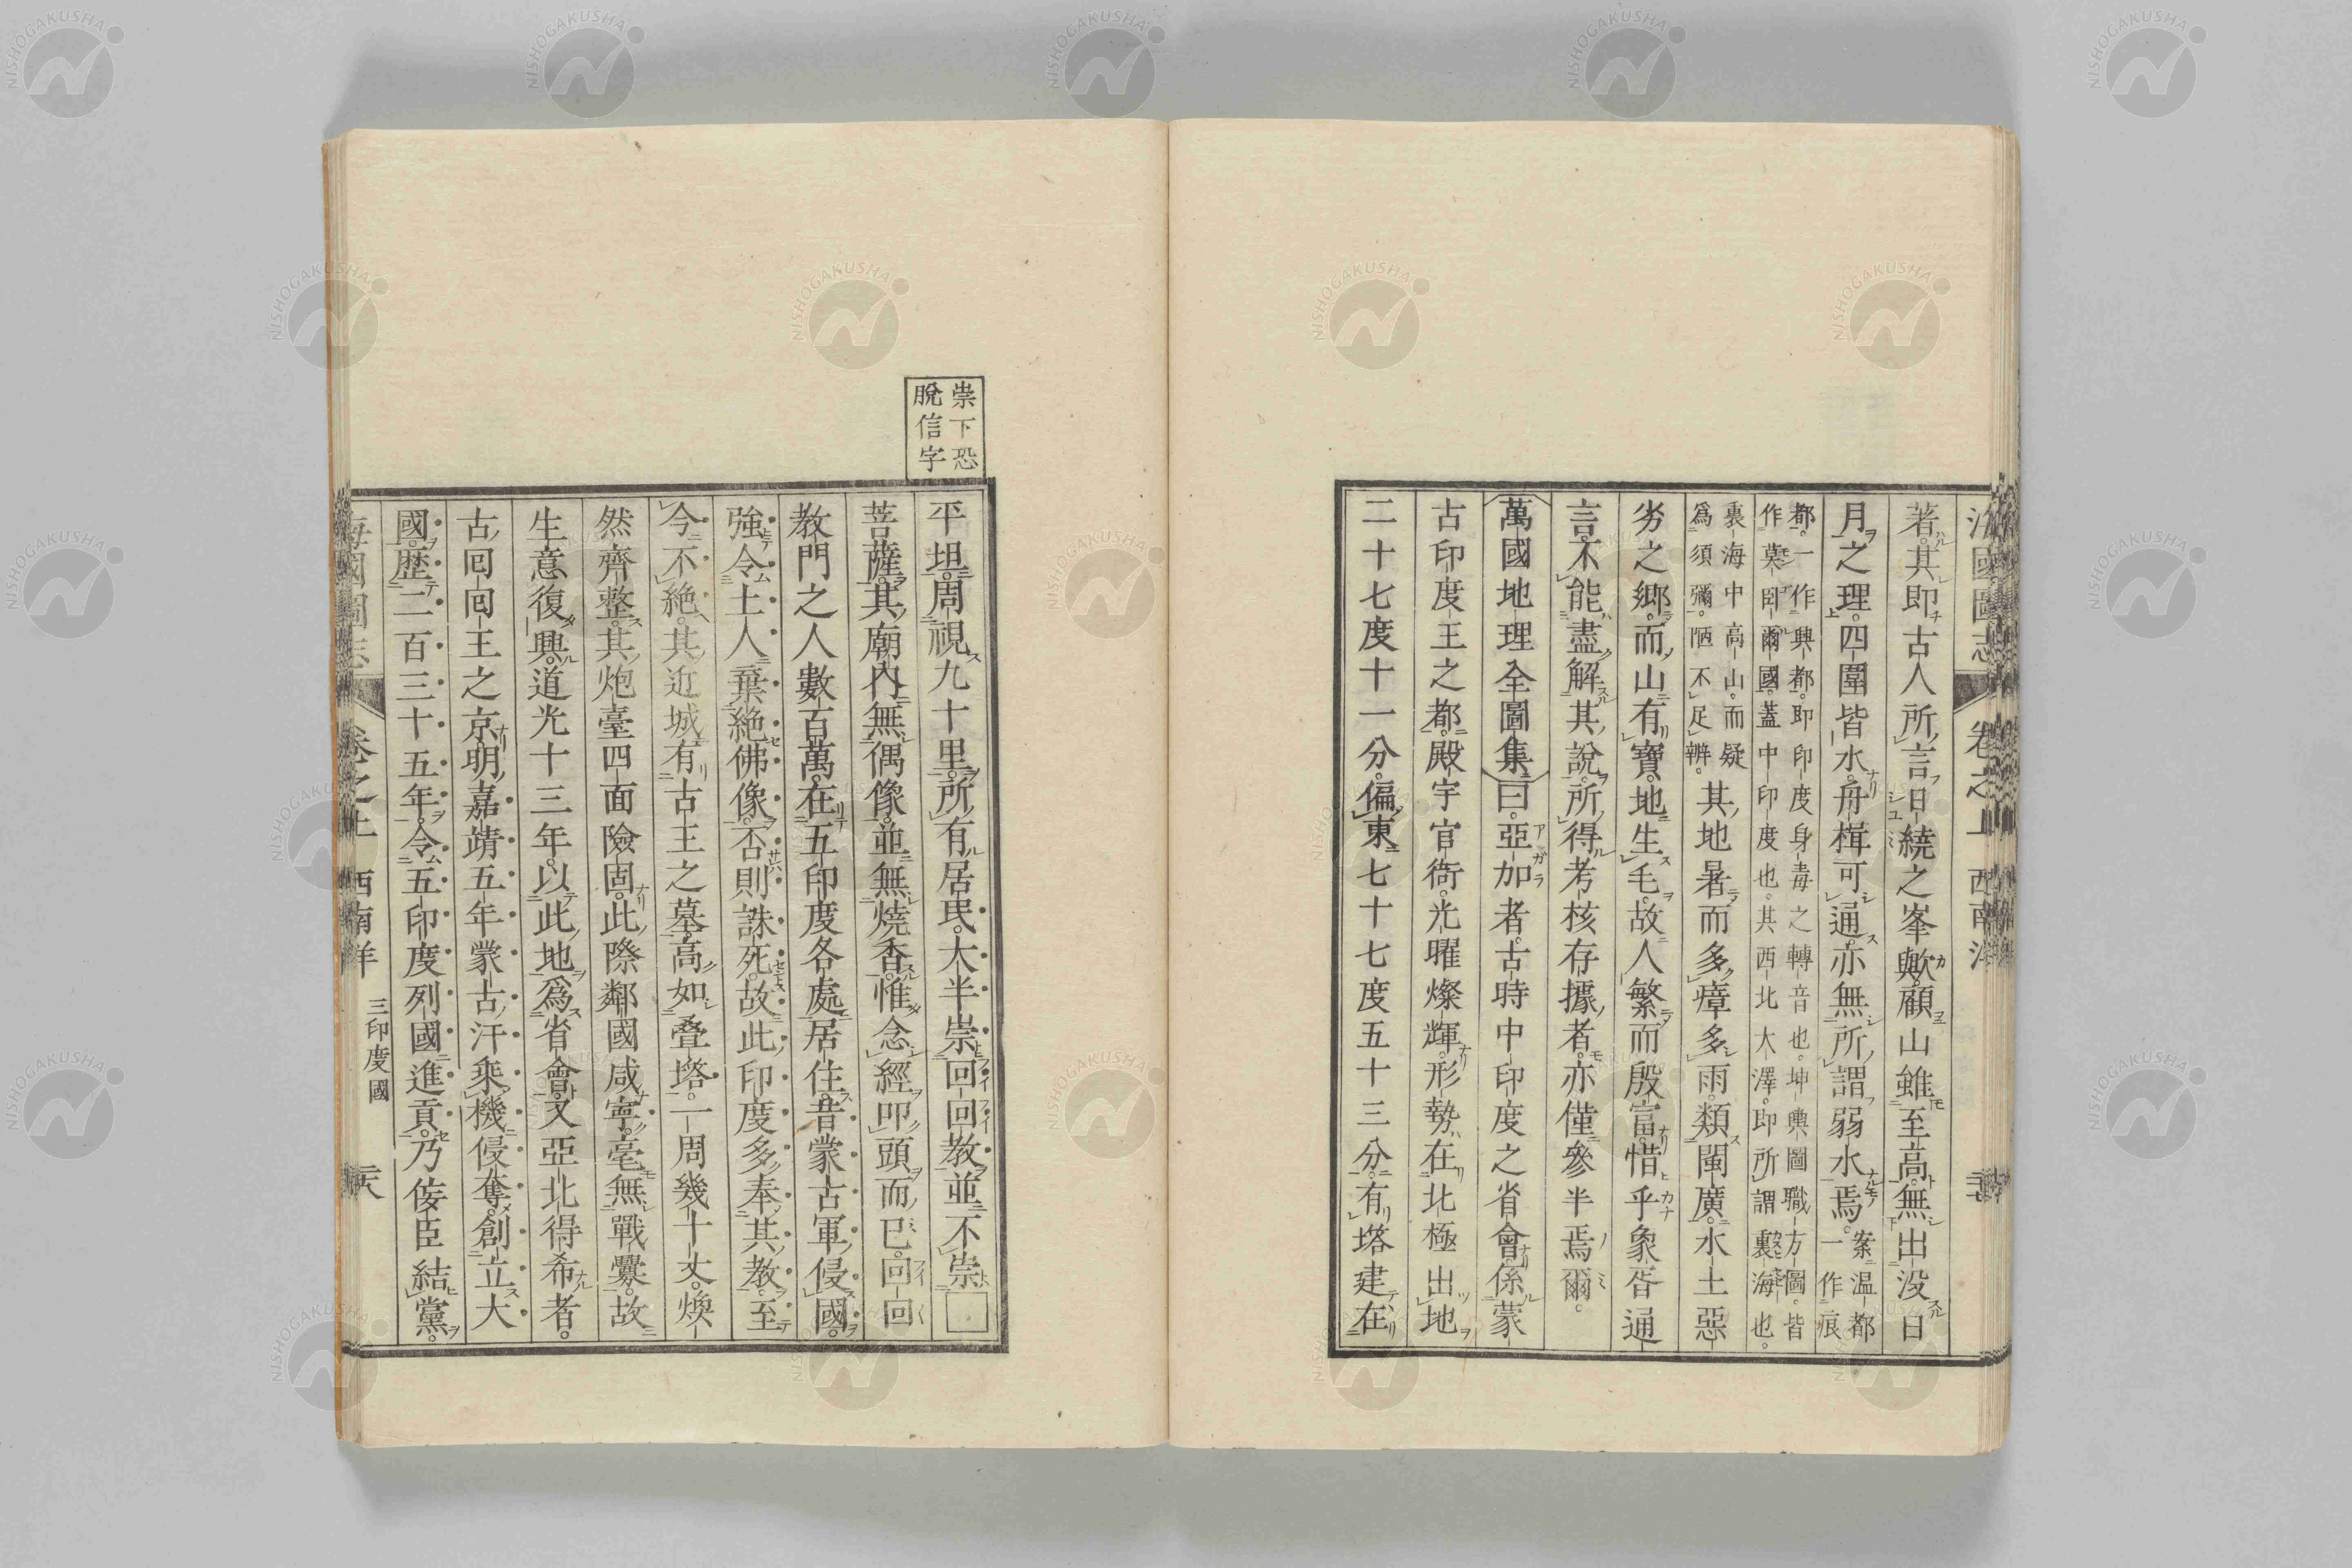 著其即古人所言日繞之峯歟顧山雖至高無出没日
月之理四圍皆水舟楫可通亦無所謂弱水焉案温都
一作痕
都一作興都即印度身毒之轉音也坤輿圖職方圖皆
作莫臥爾國蓋中印度也其西北大澤即所謂裏海也
裏海中高山而疑
爲須彌陋不足辨其地暑而多瘴多雨類閩廣水土惡
劣之鄉而山有寶地生毛故人繁而殷富惜乎象胥通
言不能盡解其說所得考核存據者亦僅參半焉爾
萬國地理全圖集曰亞加者古時中印度之省會係蒙
古印度王之都殿宇官衙光曜燦輝形勢在北極出地
二十七度十一分偏東七十七度五十三分有塔建在
崇下恐
脫信字
平坦周視九十里所有居民大半崇回回教並不崇□
菩薩其廟內無偶像並無燒香惟念經叩頭而已回回
教門之人數百萬在五印度各處居住昔蒙古軍侵國
強令土人棄絕佛像否則誅死故此印度多奉其教至
今不絕其近城有古王之墓高如疊塔一周幾十丈煥
然齊整其炮臺四面險固此際鄰國咸寧毫無戰釁故
生意復興道光十三年以此地爲省會又亞北得希者
古回回王之京明嘉靖五年蒙古汗乘機侵奪創立大
國歷二百三十五年令五印度列國進貢乃佞臣結黨
海國圖志 卷之上 西南洋 三印度國